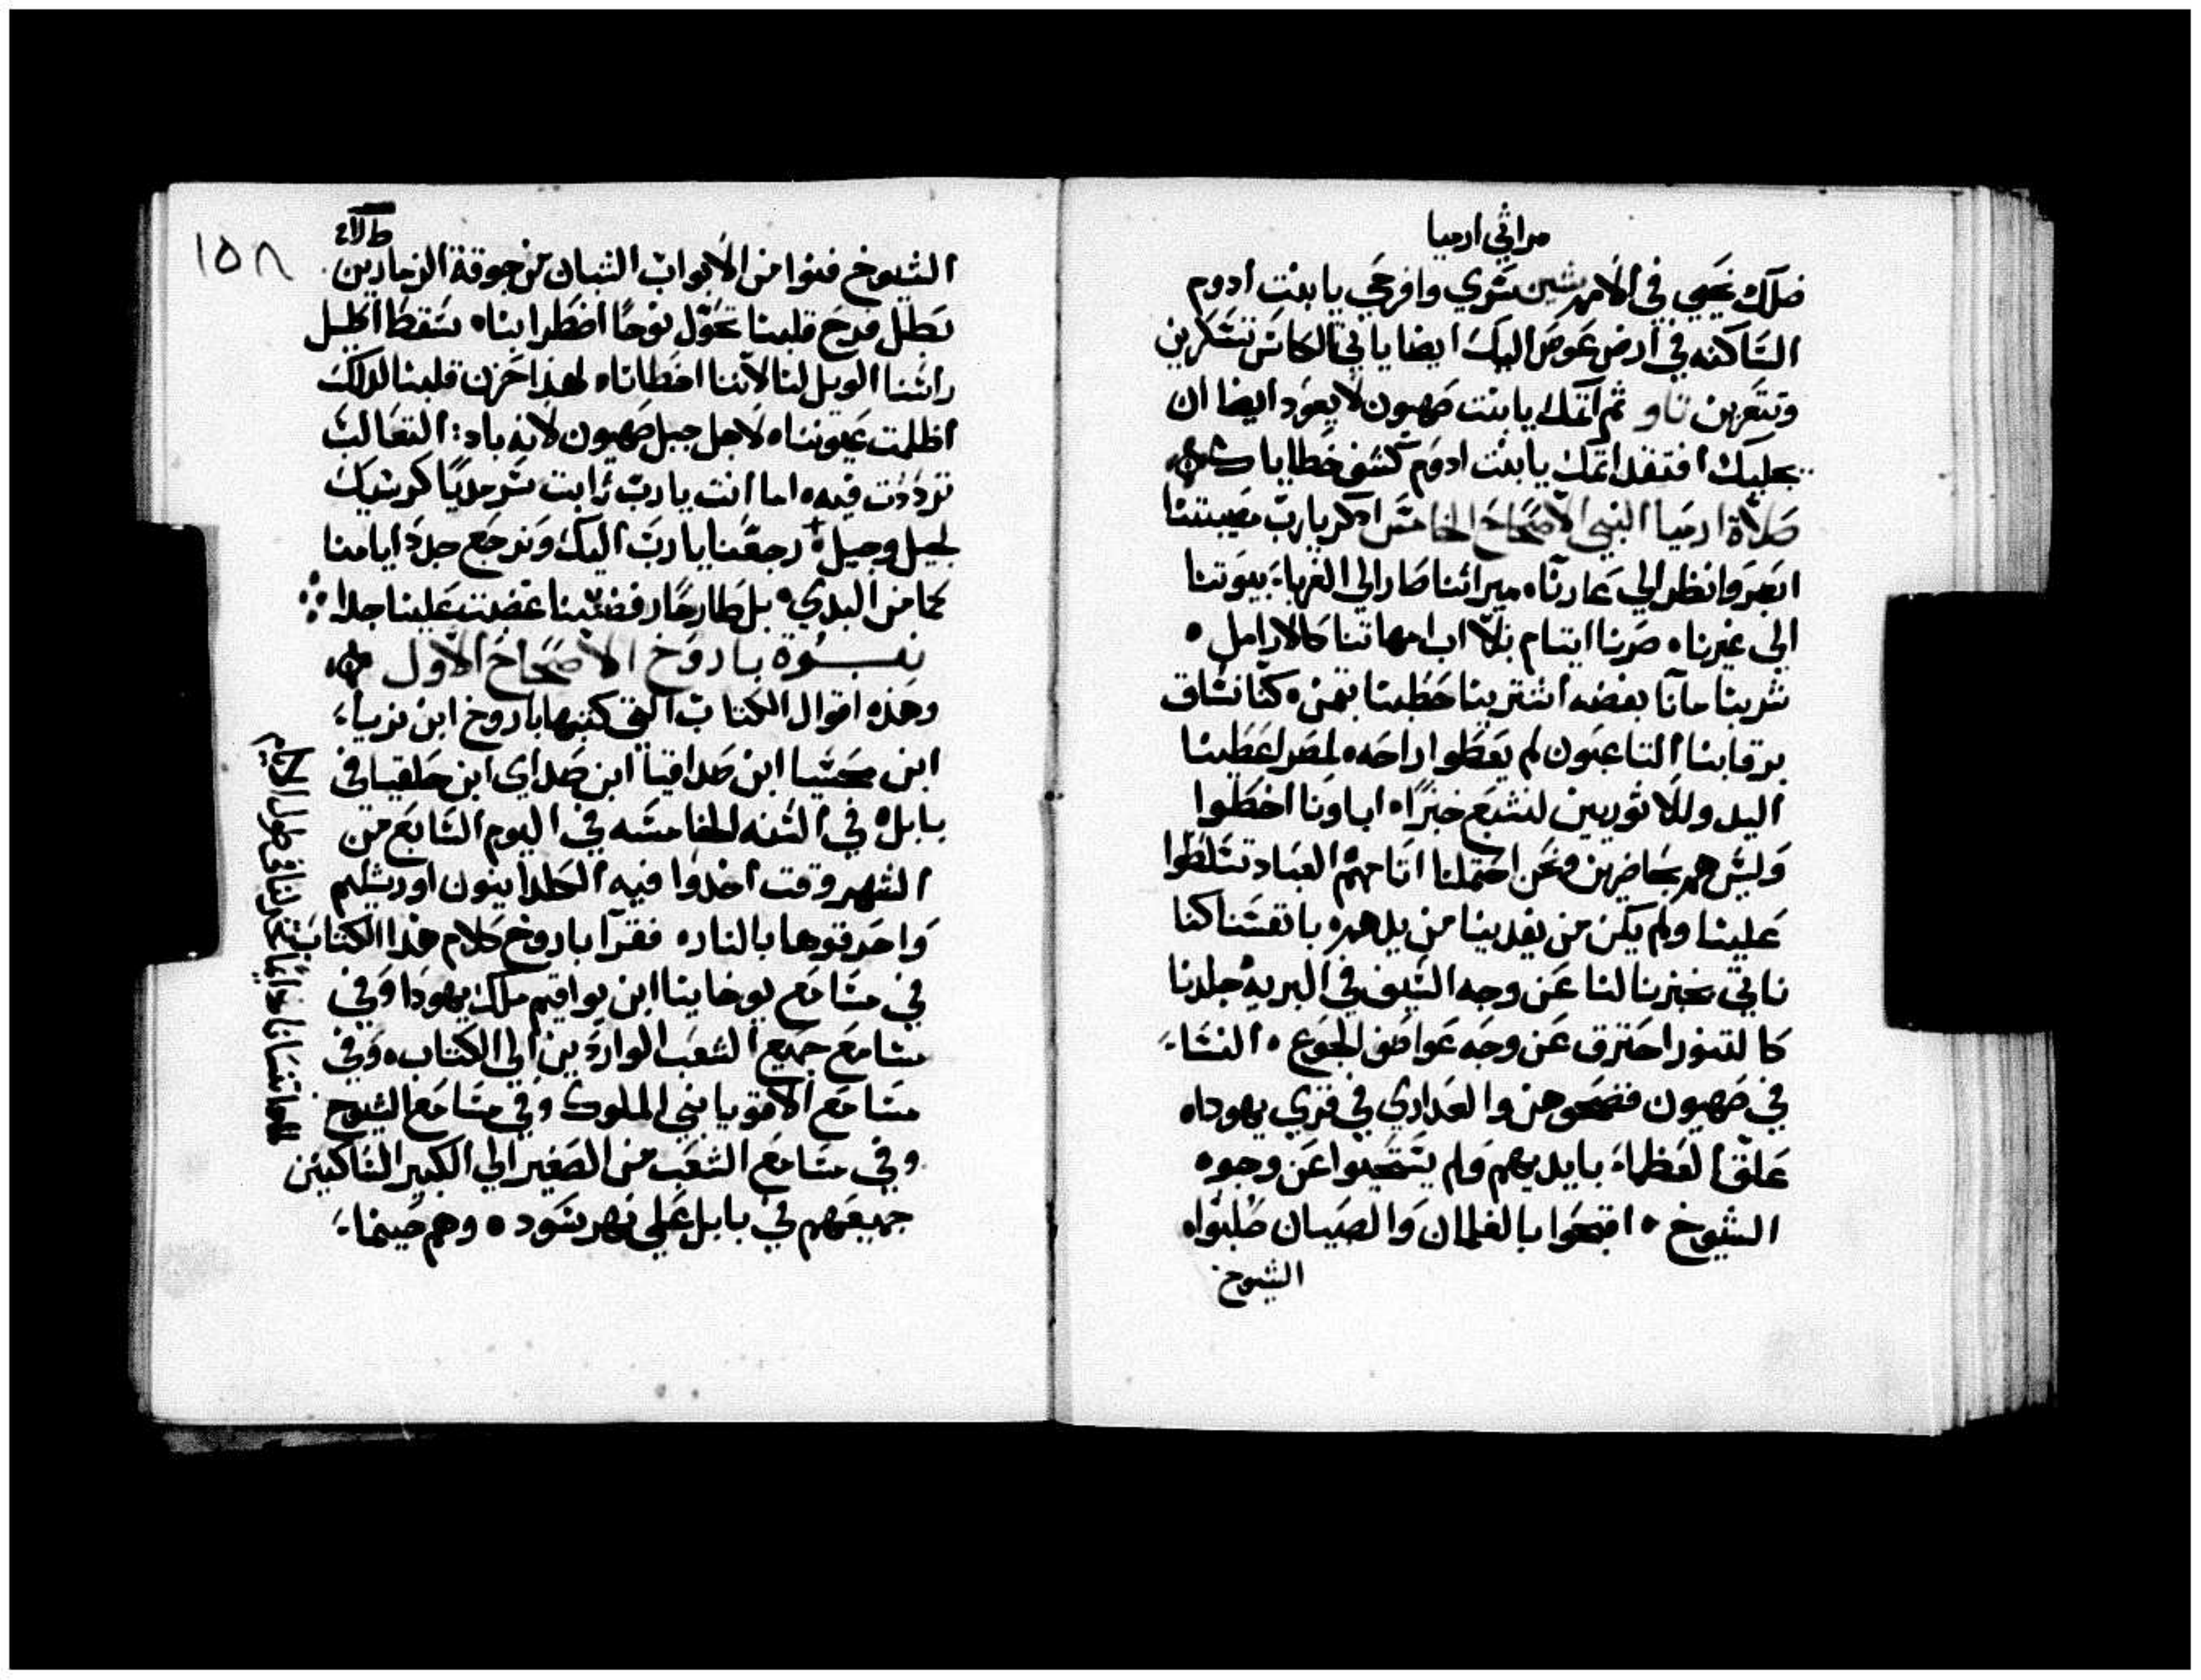 مراثي ارميا
ضلك نحيي في الامم شين سَري وافرحي يا بنت ادوم
الساكنه في ارض عوص اليك ايضا ياتي الكاس تسكرين
وتتعرين تاو ثم اثمك يا بنت صهيون لا يعود ايضا ان
يجليك افتقد اثمك يا بنت ادوم كشف خطاياك
صلاة ارميا النبي الاصحاح الخامس ادكر يارب مصيبتنا
ابصر وانظر الي عارنا ميراثنا صار الي الغربا بيوتنا
الي غيرنا صرنا ايتام بلا اب امهاتنا كالارامل
شربنا مآنا بفضه اشترينا حطبنا بثمن كنا نساق
برقابنا التاعبون لم يعطوا راحه لمصر اعطينا
اليد وللاثوريين لنشبع خبزًا اباونا اخطوا
وليس هم بحاضرين ونحن احتملنا اثامهم العباد تسلطوا
علينا ولم يكن من يفدينا من يدهم بانفسنا كنا
ناتي بخبزنا لنا عن وجه السيف في البريه جلدنا
كالتنور احترق عن وجه عواصف الجوع النساء
في صهيون فضحوهن والعداري في قري يهودا
علق العظماء بايديهم ولم يستحيوا عن وجوه
الشيوخ افتحوا بالغلمان والصبيان صلبوا
الشيوخ
طلاء
١٥٨
الشيوخ فنوا من الابواب الشبان من جوقة الزمارين
بطل فرح قلبنا تحول نوحًا اضطرابنا سقط اكليل
راسنا الويل لنا لاننا اخطانا لهذا حزن قلبنا لدلك
اظلمت عيوننا لاجل جبل صهيون لانه باد التعالب
ترددت فيه اما انت يارب ثابت سرمديًا كرسيك
لجيل وجيل ارجعنا يارب اليك ونرجع جدد ايامنا
كما من البدي بل طارحًا رفضتنا غضبت علينا جدا
نبوة باروخ الاصحاح الاول
وهذه اقوال الكتاب التي كتبها باروخ ابن نريا
ابن محسيا ابن صداقيا ابن صداي ابن حلقيا في
بابل في السنه الخامسه في اليوم السابع من
الشهر وقت اخدوا فيه الكلدانيون اورشليم
واحرقوها بالنار فقرآ باروخ كلام هذا الكتاب
في مسامع يوخانيا ابن يواقيم ملك يهودا وفي
مسامع جميع الشعب الواردين الي الكتاب وفي
مسامع الاقويا بني الملوك وفي مسامع الشيوخ
وفي مسامع الشعب من الصغير الي الكبير الساكنين
جميعهم في بابل علي نهر سود وهم حينما